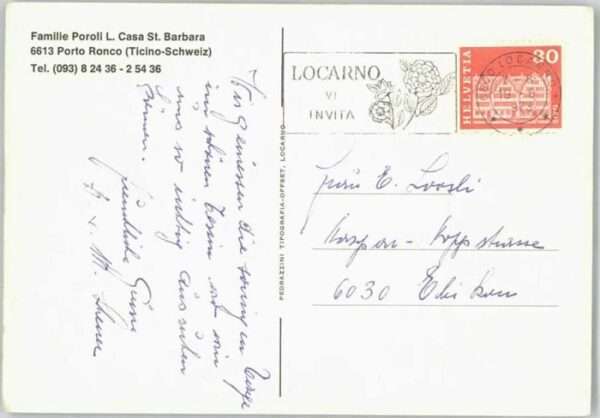 Familie Poroli L. Casa St. Barbara
6613 Porto Ronco (Ticino-Schweiz)
Tel. (093) 8 24 36 - 2 54 36
LOCARNO
VI
INVITA
HELVETIA
30
6600 LOCARNO
PEDRAZZINI TIPOGRAFIA-OFFSET, LOCARNO
Wir geniessen die sonnigen Tage
im schönen Tessin wo wir
uns so richtig ausruhen
können.
freundliche Grüsse
Frau E. Loosli
Kaspar-Koppstrasse
6030 Ebikon